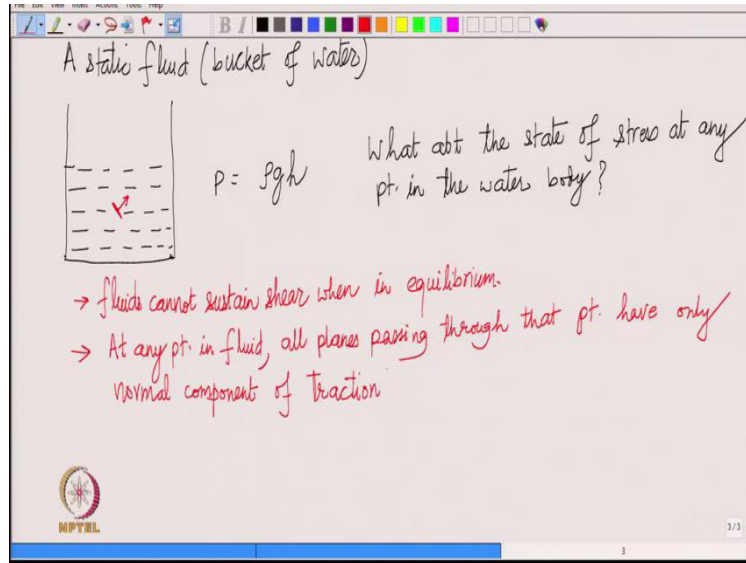 File Edit View Insert Actions Tools Help
B I
A static fluid (bucket of water)
P = ρgh
What abt the state of stress at any
pt. in the water body?
→ fluids cannot sustain shear when in equilibrium.
→ At any pt. in fluid, all planes passing through that pt. have only
normal component of traction
NPTEL
3/3
3